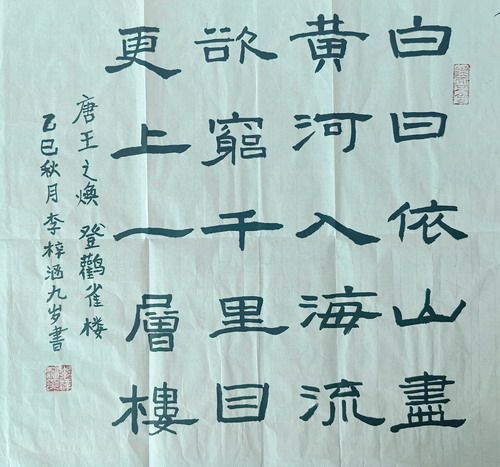 白日依山盡
黄河入海流
欲窮千里目
更上一層樓
唐王之焕 登鸛雀楼
乙巳秋月李梓涵九岁書